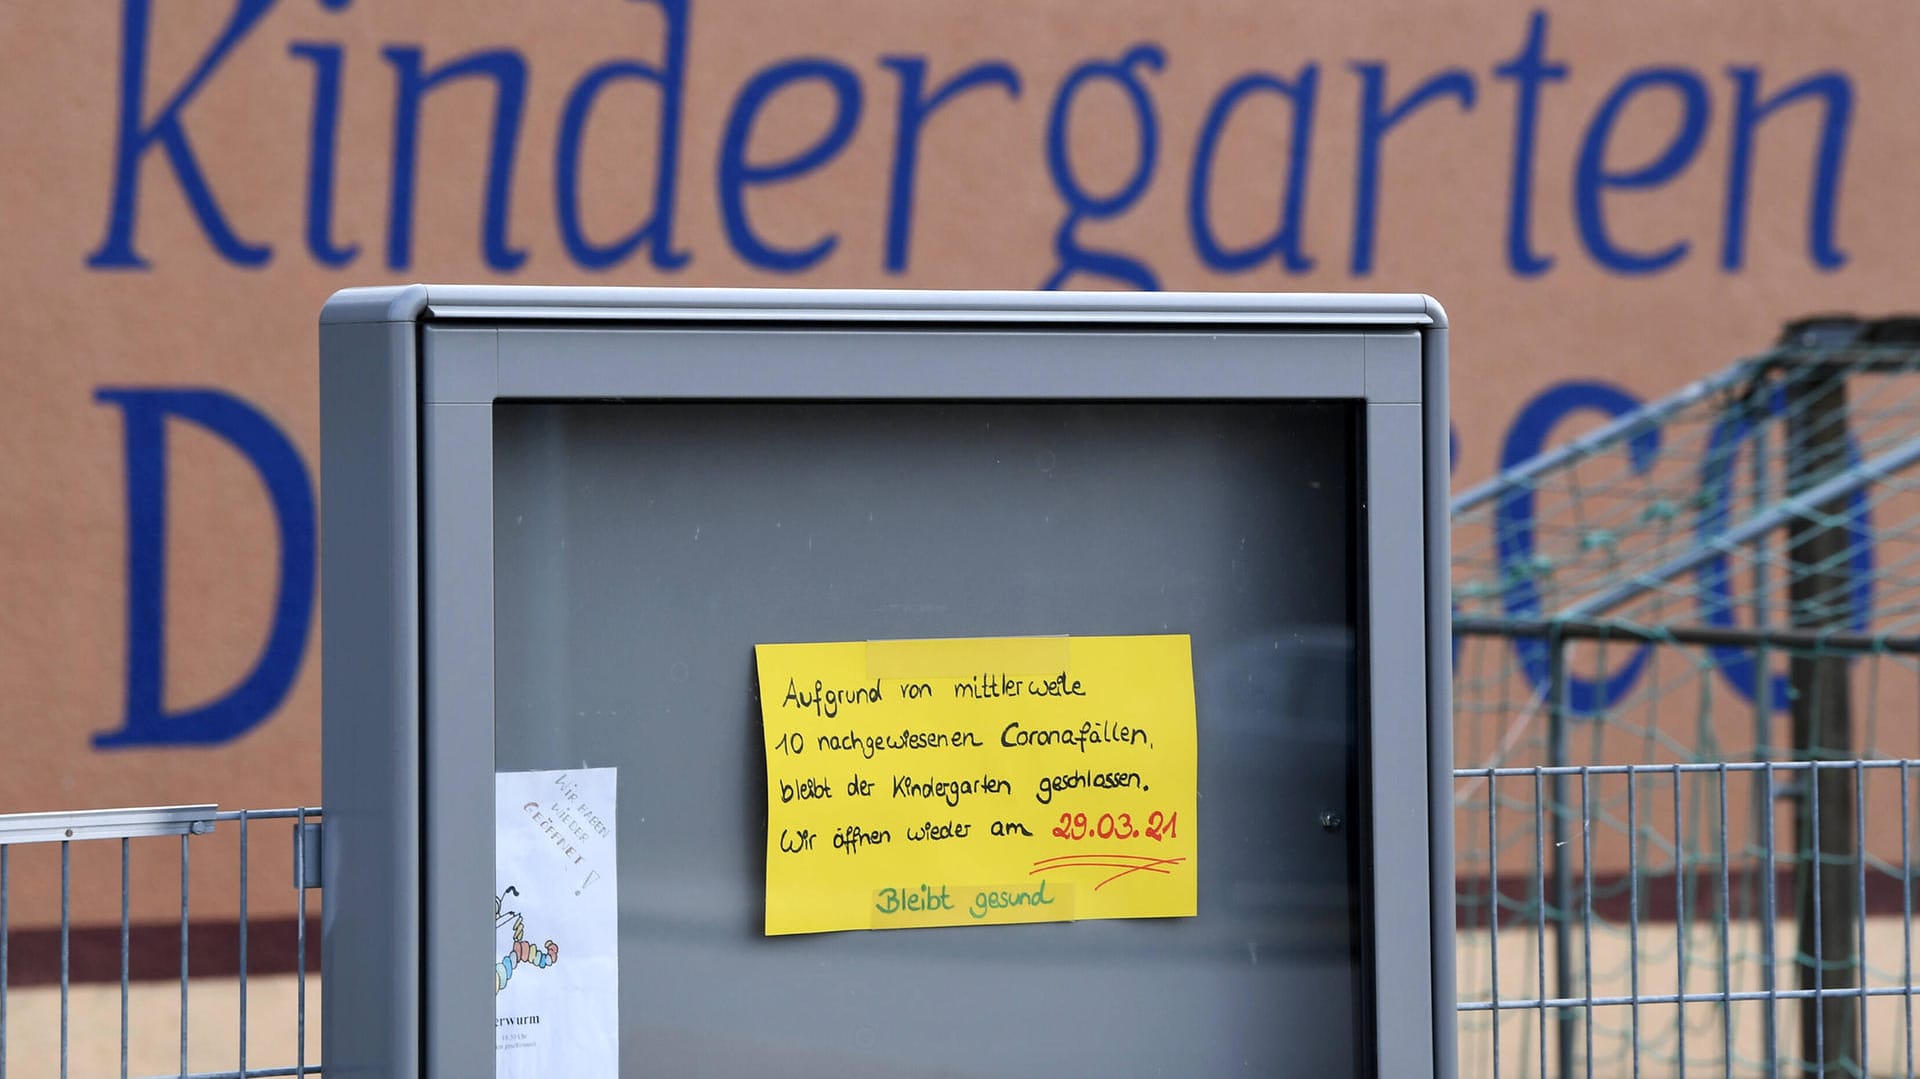 Kindergarten
D
CO
Aufgrund von mittlerweile
10 nachgewiesenen Coronafällen,
bleibt der Kindergarten geschlossen.
Wir öffnen wieder am 29.03.21
Bleibt gesund
WIR HABEN
WIEDER
GEÖFFNET!
erwurm
18.30 Uhr